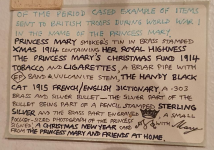 OF THE PERIOD CASED EXAMPLE OF ITEMS
SENT TO BRITISH TROOPS DURING WORLD WAR I
IN THE NAME OF THE PRINCESS MARY.
PRINCESS MARY SMOKER'S TIN IN BRASS STAMPED
XMAS 1914 CONTAINING HER ROYAL HIGHNESS
THE PRINCESS MARY'S CHRISTMAS FUND 1914
TOBACCO AND CIGARETTES, A BRIAR PIPE WITH
EP BAND & VULCANITE STEM, THE HANDY BLACK
CAT 1915 FRENCH/ENGLISH DICTIONARY A .303
BRASS AND SILVER BULLET - THE SILVER PART OF THE
BULLET BEING PART OF A PENCIL STAMPED STERLING
SILVER AND THE BRASS PART ENGRAVED A SMALL
SIZED PHOTOGRAPH OF THE
A CHRISTMAS NEW YEAR CARD Mary
FROM THE PRINCESS MARY AND FRIENDS AT HOME.